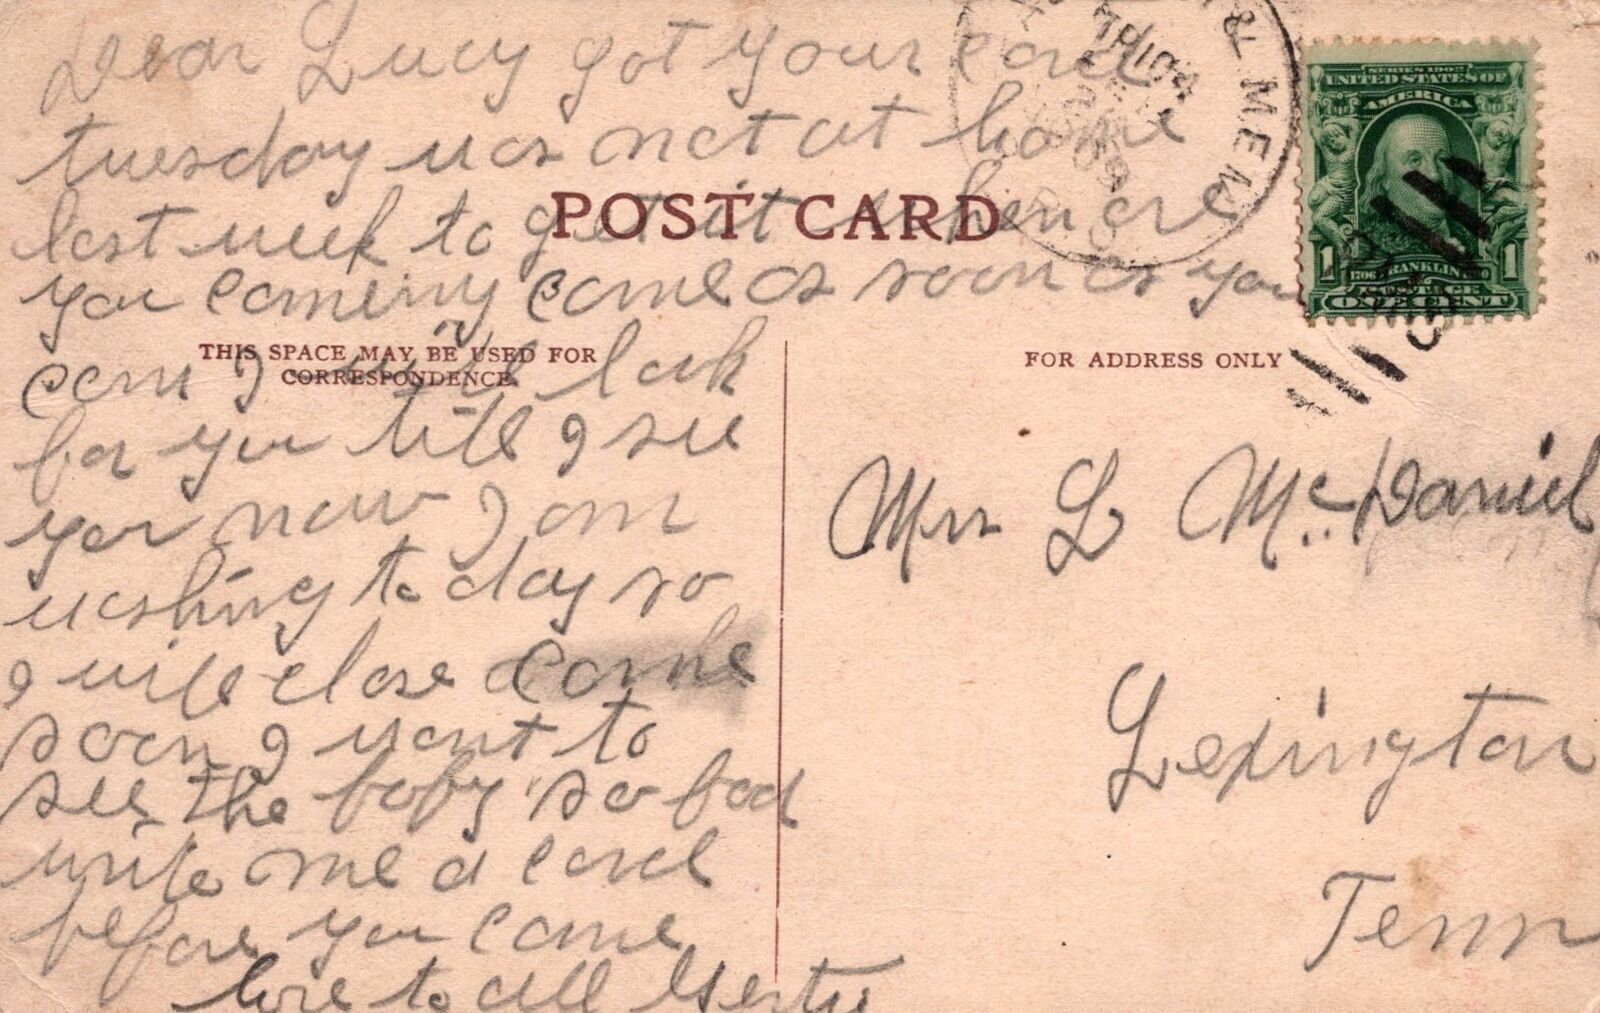 Dear Lucy got your card
tuesday was not at home
last week to get it when are
you coming come as soon as you
can I will look
for you till I see
you now I am
washing to day so
I will close come
soon I want to
see the baby so bad
write me a card
before you come
love to all Gertie
POST CARD
THIS SPACE MAY BE USED FOR
CORRESPONDENCE
FOR ADDRESS ONLY
& MEM
09
SERIES 1902
UNITED STATES OF
AMERICA
1 FRANKLIN 1
ONE CENT
Mrs L McDaniel
Lexington
Tenn